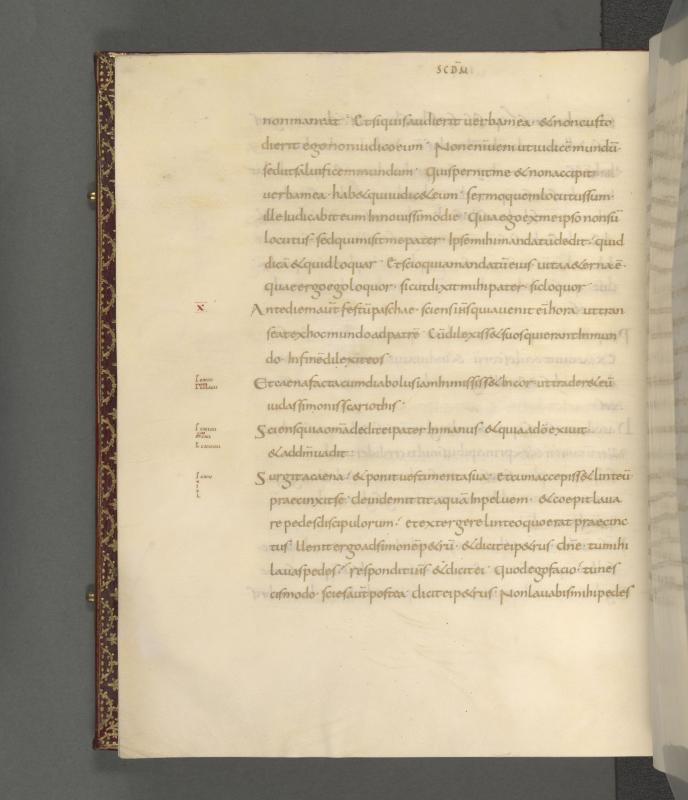 SCDM̄
nonmaneat · Etsiquisaudierit uerbamea · &noncusto
dierit egononiudicoeum · Nonenīueni utiudicēmundū
sedutsaluificemmundum · Quispernitme &nonaccipit
uerbamea · hab&quiiudic&eum · sermoquemlocutussum ·
illeiudicabiteum Innouissimodie · Quiaegoexmeipso nonsū
locutus · sedquimisitmepater · Ipsemihimandatūdedit · quid
dicā &quidloquar · Etscioquiamandatūeius uitaa&ernaē ·
quaeergoegoloquor · sicutdixitmihipater · sicloquor ·
X Antediemaut̄ festūpaschae · sciensih̄squiauenit ei᷒hora · uttran
seatexhocmundoadpatrē · Cūdilexiss&suosquierantInmun
do · Infinēdilexiteos ·
Etcaenafactacumdiabolusiaminmisiss&Incor · uttrader&eū
iudassimonisscariothis ·
Sciensquiaomādediteipater Inmanus · &quiaadōexiuit
&addm̄uadit ·
Surgitacaena · &ponituestimentasua · Etcumaccepiss&linteū
praecinxitse · deindemittitaquāInpeluem · &coepitlaua
repedesdiscipulorum · etextergerelinteoquoerat praecinc
tus · Uenitergoadsimonēp&rū · &diciteip&rus · dn̄e · tumihi
lauaspedes · responditih̄s &dicitei · Quodegofacio · tunes
cismodo · sciesaut̄postea · diciteip&rus · Nonlauabismihipedes